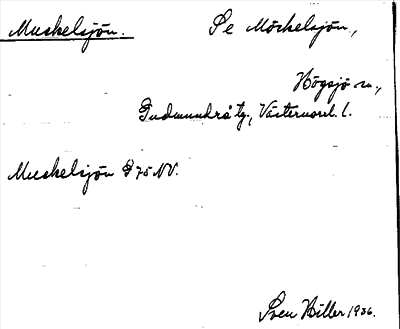 Muskelsjön. Se Mörkelsjön,
Högsjö sn.,
Gudmundrå tg., Västernorrl. l.
Muskelsjön G 75 NV.
Sven Hiller 1936.